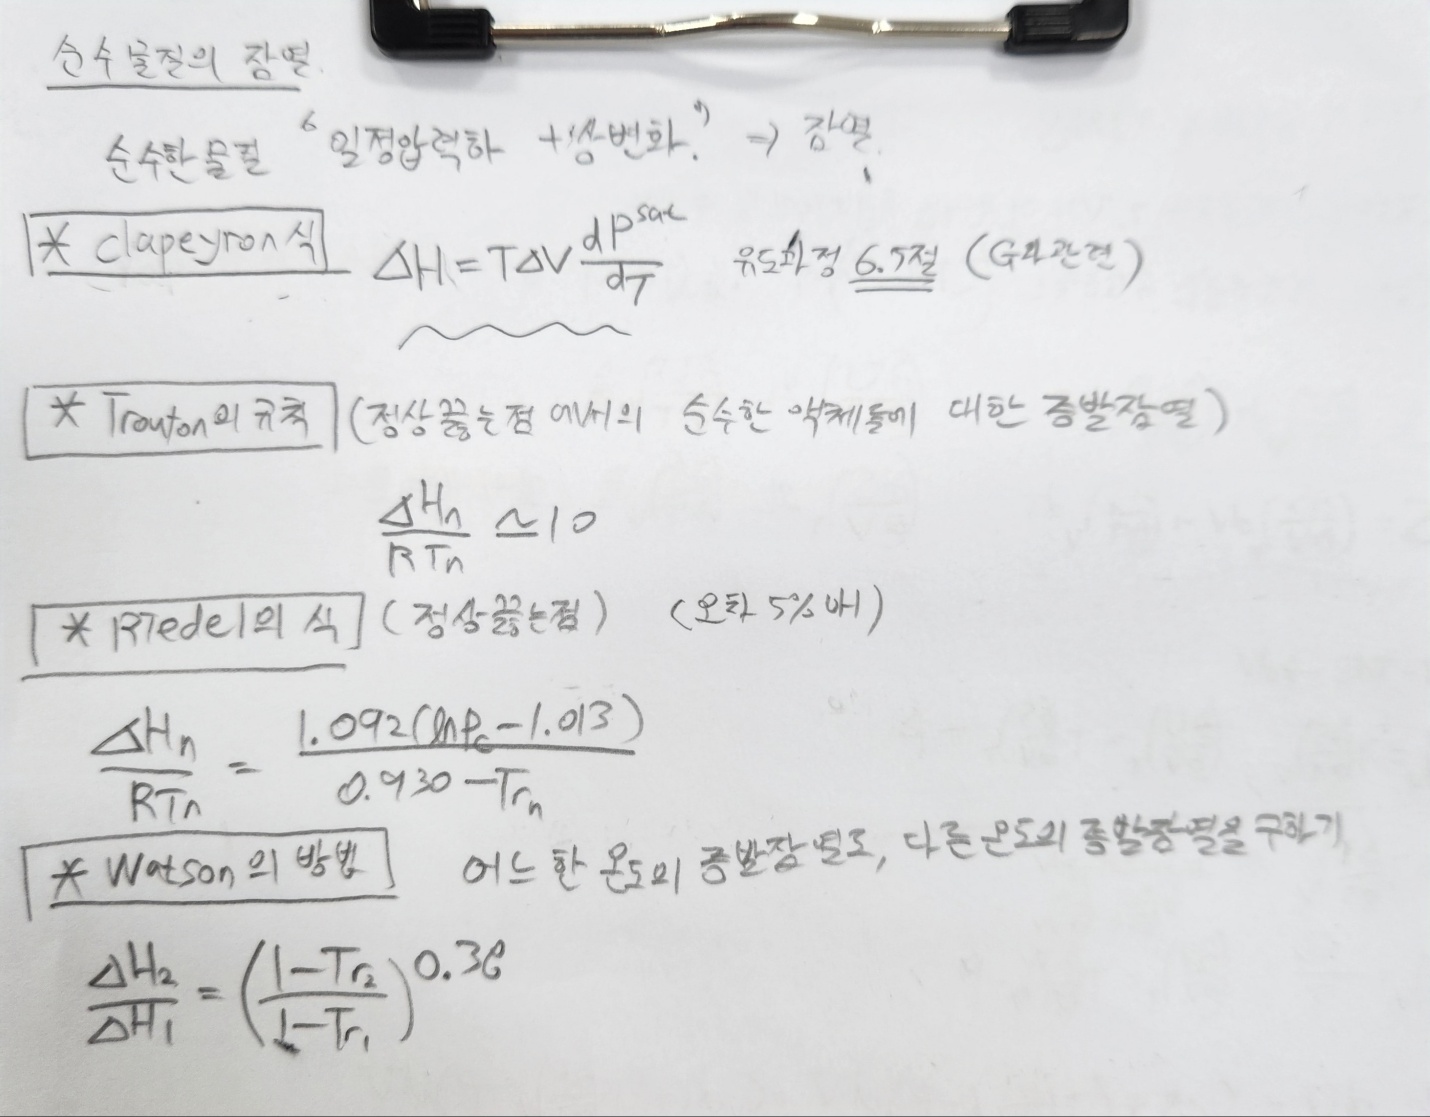 순수물질의 잠열.
순수한물질 “일정압력하 + 상변화.” ⇒ 잠열.
* Clapeyron식 ΔH = TΔV dP^sat/dT 유도과정 6.5절 (G와관련)
* Trouton의 규칙 (정상끓는점 에서의 순수한 액체들에 대한 증발잠열)
ΔHn/RTn ≃ 10
* Riedel의 식 (정상끓는점) (오차 5% 내)
ΔHn/RTn = 1.092(lnPc - 1.013)/0.930 - Trn
* Watson의 방법 어느 한 온도의 증발잠열로, 다른온도의 증발잠열을 구하기
ΔH2/ΔH1 = (1-Tr2/1-Tr1)^0.38